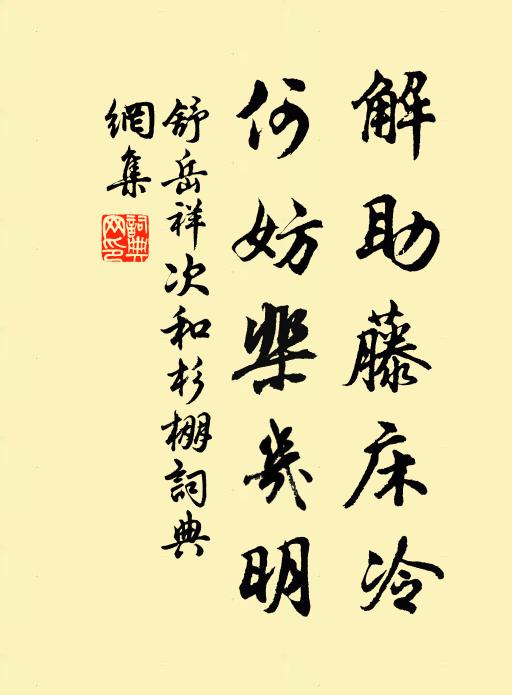 解助藤床冷
何妨棐几明
舒岳祥次和杉棚詞典
網集
詞典網印